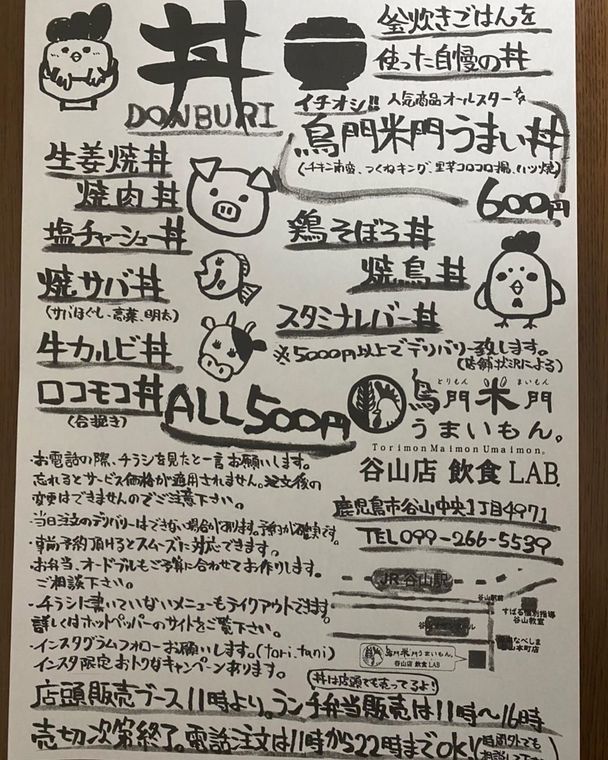 丼
DONBURI
釜炊きごはんを
使った自慢の丼
イチオシ!! 人気商品オールスター☆
鳥門米門うまい丼
(チキン南蛮、つくねキング、里芋コロコロ揚、ハツ焼)
600円
生姜焼丼
焼肉丼
塩チャーシュー丼
焼サバ丼
(サバほぐし、高菜、明太)
牛カルビ丼
ロコモコ丼
(合挽き)
鶏そぼろ丼
焼鳥丼
スタミナレバー丼
※5000円以上でデリバリー致します。
(店舗状況による)
ALL500円
とりもん まいもん
鳥門米門
うまいもん。
Torimon Maimon Umaimon.
谷山店 飲食LAB.
鹿児島市谷山中央1丁目4971
TEL 099-266-5539
・お電話の際、チラシを見たと一言お願いします。
忘れるとサービス価格が適用されません。注文後の
変更はできませんのでご注意下さい。
・当日注文のデリバリーはできない場合があります。予約が確実です。
・事前予約頂けるとスムーズに対応できます。
・お弁当、オードブルもご予算に合わせてお作りします。
ご相談下さい。
・チラシに書いていないメニューもテイクアウトできます
詳しくはホットペッパーのサイトをご覧下さい。
・インスタグラムフォローお願いします。(tori.tani)
インスタ限定おトクなキャンペーンあります。
JR谷山駅
谷山駅前
すばる個別指導
谷山教室
なべしま
谷山本町店
鳥門米門うまいもん。
谷山店 飲食LAB
丼は店頭でも売ってるよ!
店頭販売ブース11時より。ランチ弁当販売は11時〜16時
売切次第終了。電話注文は11時から22時までOK!
(時間外でも
相談して下さい